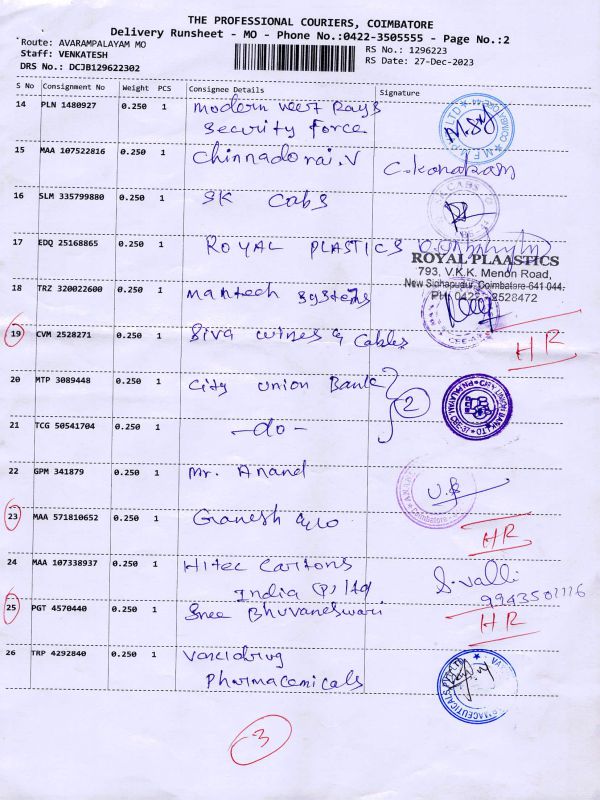 THE PROFESSIONAL COURIERS, COIMBATORE
Delivery Runsheet - MO - Phone No.:0422-3505555 - Page No.:2
Route: AVARAMPALAYAM MO
Staff: VENKATESH
DRS No.: DCJB129622302
RS No.: 1296223
RS Date: 27-Dec-2023
S No Consignment No Weight PCS Consignee Details Signature
14 PLN 1480927 0.250 1 Modern Vert Rays
Security Force
15 MAA 107522816 0.250 1 Chinnadorai.V C.Konakam
16 SLM 335799880 0.250 1 SK Cabs
17 EDQ 25168865 0.250 1 ROYAL PLASTICS
ROYAL PLAASTICS
793, V.K.K. Menon Road,
New Siphapudur, Coimbatore-641 044.
PH: 0422 - 2528472
18 TRZ 320022600 0.250 1 Mantech Systems
19 CVM 2528271 0.250 1 Siva wires & Cables HR
20 MTP 3089448 0.250 1 City Union Bank 2
21 TCG 50541704 0.250 1 -do-
22 GPM 341879 0.250 1 Mr. Anand
23 MAA 571810652 0.250 1 Ganesh &co HR
24 MAA 107338937 0.250 1 Hitec Cartons
India (P) ltd S.Valli
9943501116
25 PGT 4570440 0.250 1 Sree Bhuvaneswari HR
26 TRP 4292840 0.250 1
Pharmaceuticals
3